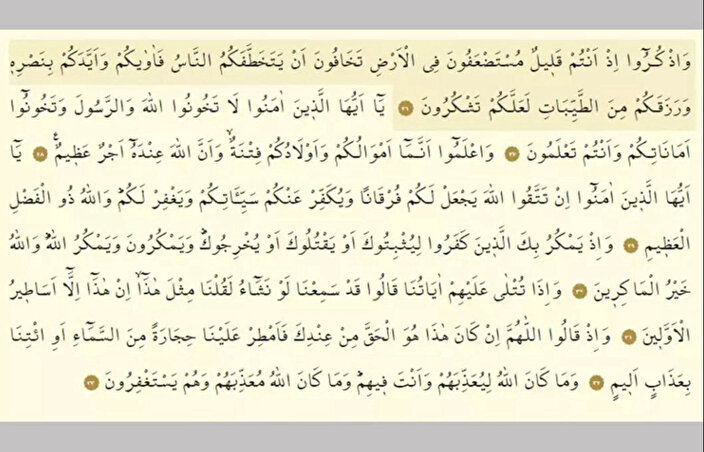 وَاذْكُرُٓوا اِذْ اَنْتُمْ قَلٖيلٌ مُسْتَضْعَفُونَ فِى الْاَرْضِ تَخَافُونَ اَنْ يَتَخَطَّفَكُمُ النَّاسُ فَاٰوٰيكُمْ وَاَيَّدَكُمْ بِنَصْرِهٖ
وَرَزَقَكُمْ مِنَ الطَّيِّبَاتِ لَعَلَّكُمْ تَشْكُرُونَ ﴿٢٦﴾ يَٓا اَيُّهَا الَّذٖينَ اٰمَنُوا لَا تَخُونُوا اللّٰهَ وَالرَّسُولَ وَتَخُونُٓوا
اَمَانَاتِكُمْ وَاَنْتُمْ تَعْلَمُونَ ﴿٢٧﴾ وَاعْلَمُٓوا اَنَّمَٓا اَمْوَالُكُمْ وَاَوْلَادُكُمْ فِتْنَةٌۙ وَاَنَّ اللّٰهَ عِنْدَهُٓ اَجْرٌ عَظٖيمٌࣖ ﴿٢٨﴾ يَٓا
اَيُّهَا الَّذٖينَ اٰمَنُٓوا اِنْ تَتَّقُوا اللّٰهَ يَجْعَلْ لَكُمْ فُرْقَانًا وَيُكَفِّرْ عَنْكُمْ سَيِّـَٔاتِكُمْ وَيَغْفِرْ لَكُمْؕ وَاللّٰهُ ذُو الْفَضْلِ
الْعَظٖيمِ ﴿٢٩﴾ وَاِذْ يَمْكُرُ بِكَ الَّذٖينَ كَفَرُوا لِيُثْبِتُوكَ اَوْ يَقْتُلُوكَ اَوْ يُخْرِجُوكَؕ وَيَمْكُرُونَ وَيَمْكُرُ اللّٰهُؕ وَاللّٰهُ
خَيْرُ الْمَاكِرٖينَ ﴿٣٠﴾ وَاِذَا تُتْلٰى عَلَيْهِمْ اٰيَاتُنَا قَالُوا قَدْ سَمِعْنَا لَوْ نَشَٓاءُ لَقُلْنَا مِثْلَ هٰذَٓاۙ اِنْ هٰذَٓا اِلَّٓا اَسَاطٖيرُ
الْاَوَّلٖينَ ﴿٣١﴾ وَاِذْ قَالُوا اللّٰهُمَّ اِنْ كَانَ هٰذَا هُوَ الْحَقَّ مِنْ عِنْدِكَ فَاَمْطِرْ عَلَيْنَا حِجَارَةً مِنَ السَّمَٓاءِ اَوِ ائْتِنَا
بِعَذَابٍ اَلٖيمٍ ﴿٣٢﴾ وَمَا كَانَ اللّٰهُ لِيُعَذِّبَهُمْ وَاَنْتَ فٖيهِمْؕ وَمَا كَانَ اللّٰهُ مُعَذِّبَهُمْ وَهُمْ يَسْتَغْفِرُونَ ﴿٣٣﴾